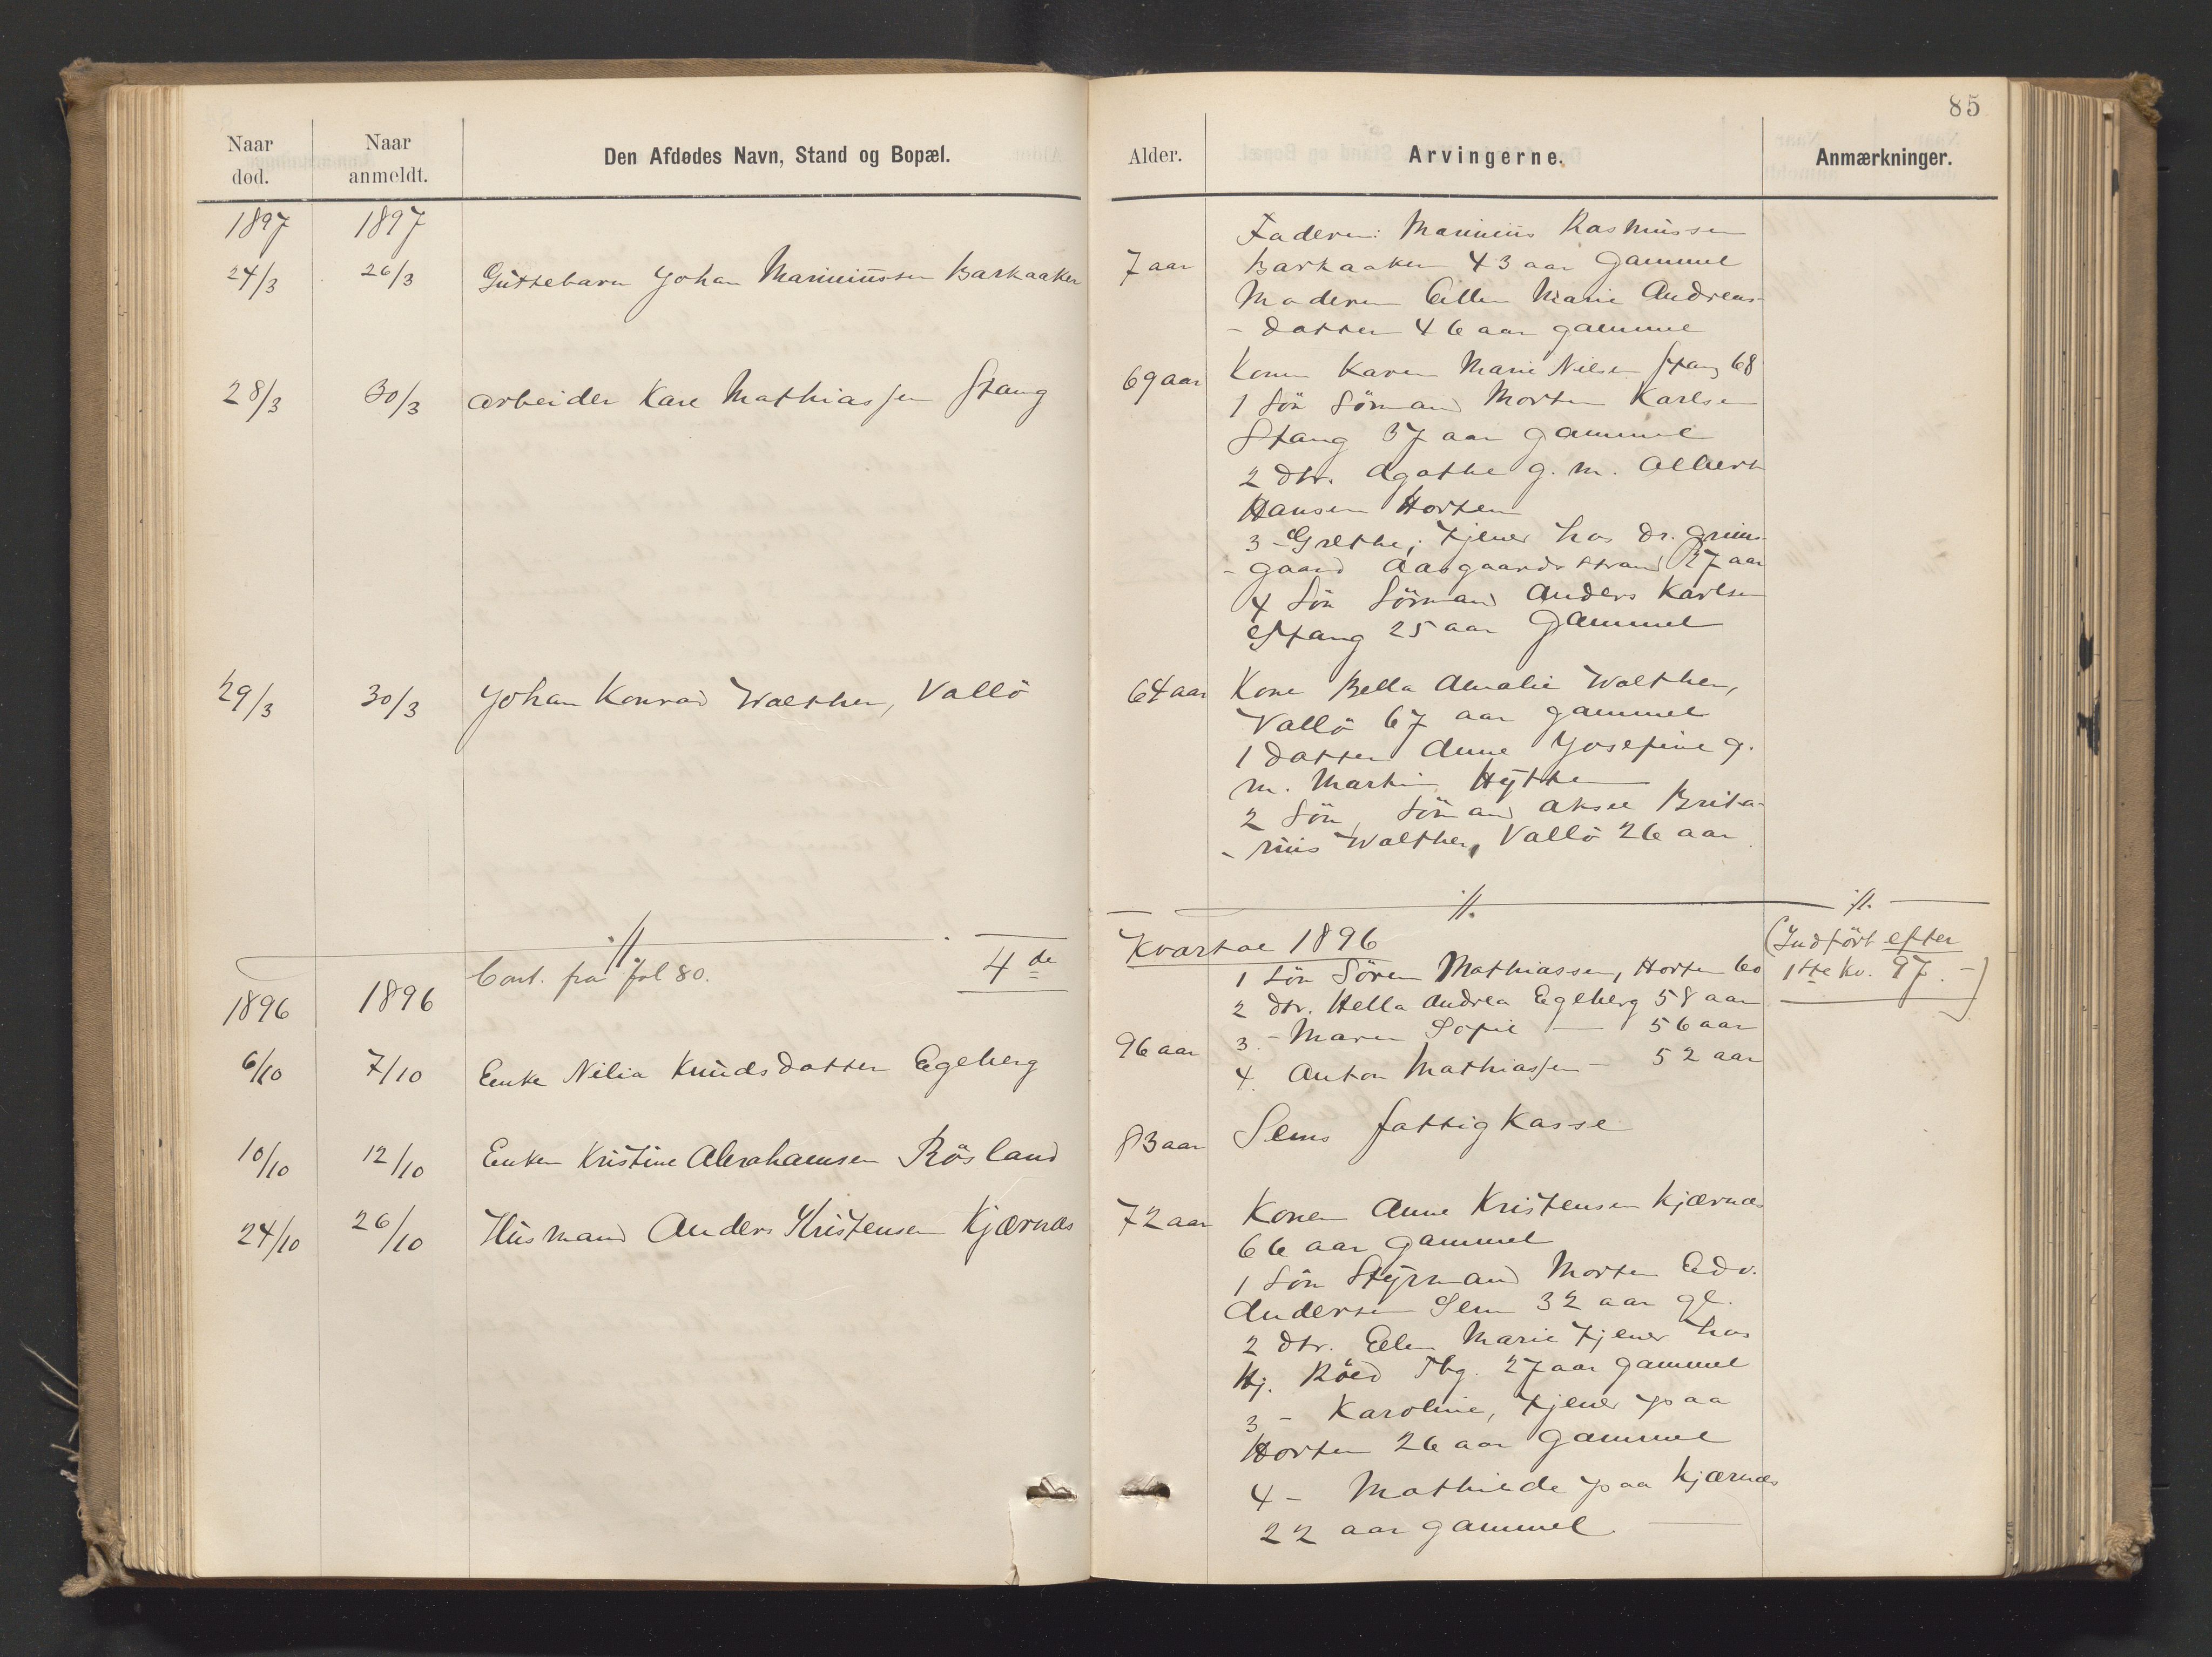 85
Naar død.
Naar anmeldt.
Den Afdødes Navn, Stand og Bopæl.
Alder.
Arvingerne.
Anmærkninger.
1897
1897
24/3
26/3
Guttebarn Johan Mariniussen Barkaaker
7 aar
Faderen: Marinius Rasmussen
Barkaaker 43 aar gammel
Moderen Ellen Marie Andreas-
- datter 46 aar gammel
28/3
30/3
Arbeider Karl Mathiassen Stang
69 aar
Konen Karen Marie Nilsen Stang 68
1 Sön Sömand Morten Karlsen
Stang 37 aar gammel
2 Dtr. Agathe g. m. Albert
Hansen Horten
3 - Grethe, tjener hos Dr. Grims-
- gaard Aasgaardstrand 27 aar
4 Sön Sömand Anders Karlsen
Stang 25 aar gammel
29/3
30/3
Johan Konrad Walther, Vallö
64 aar
Kone Bella Amalie Walther,
Vallö 67 aar gammel
1 Datter Anne Josefine g.
m. Martin Hytten
2 Sön, Sömand Aksel Brita-
- nius Walther, Vallö 26 aar
Cont. fra fol 80.
4de
Kvartal 1896
(Indfört efter
1ste Kv. 97. -)
1896
1896
6/10
7/10
Enke Nilia Knudsdatter Egeberg
96 aar
1 Sön Sören Mathiassen, Horten 60
2 Dtr. Hella Andrea Egeberg 58 aar
3 - Maren Sofie — 56 aar
4. Anton Mathiassen — 52 aar
10/10
12/10
Enken Kristine Abrahamsen Rösland
83 aar
Sems fattigkasse
24/10
26/10
Husmand Anders Kristensen Kjærnæs
72 aar
Konen Anne Kristensen Kjærnæs
66 aar gammel
1 Sön Styrmand Morten Edv.
Andersen Sem 32 aar gl.
2 Dtr. Ellen Marie tjener hos
Hj. Röed Tbg. 27 aar gammel
3 - Karoline, tjener paa
Horten 26 aar gammel
4 - Mathilde paa Kjærnæs
22 aar gammel